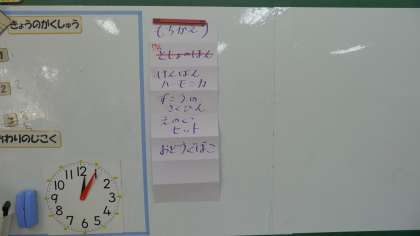 きょうのがくしゅう
1
2
3
わりのじこく
(ちかん)
としょのほん
けんばん
ハーモニカ
ずこうの
さくひん
えのぐ
セット
おどうぐばこ
12
1
2
3
4
5
6
7
8
9
10
11